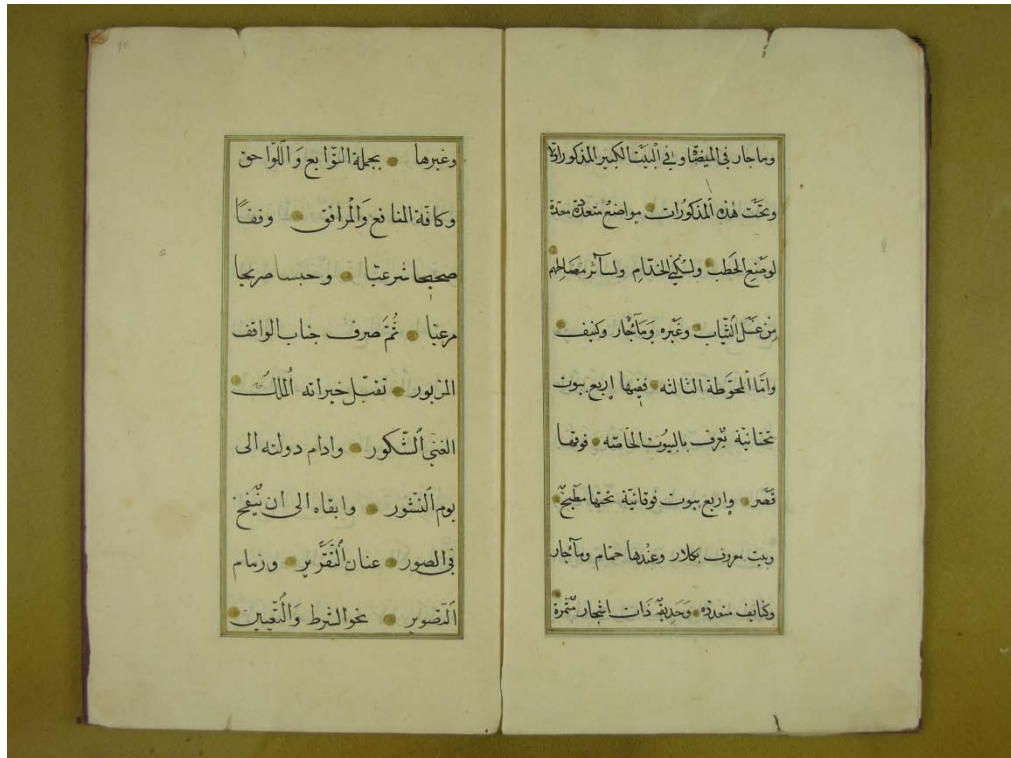 وماء جار في الميضاة وفي البيت الكبير المذكورات
وتحت هذه المذكورات مواضع متعددة معدة
لوضع الحطب ولسكني الخدام ولسائر مصالحهم
من غسل الثياب وغيره وماء جار وكنيف
واما المحوطة الثالثه ففيها اربع بيوت
تحتانية يعرف بالبيوت الخاصه فوقها
قصر واربع بيوت فوقانية تحتها مطبخ
وبيت معروف بكلار وعندها حمام وماء جار
وكنايف متعدده وحديقة ذات اشجار مثمرة
وغيرها بجملة التوابع واللواحق
وكافة المنافع والمرافق وقفا
صحيحا شرعيا وحبسا صريحا
مرعيا ثم صرف جناب الواقف
المزبور تقبل خيراته الملك
الغني الشكور وادام دولته الى
يوم النشور وابقاه الى ان ينفخ
في الصور عنان التقرير وزمام
التصوير نحو الشرط والتعيين